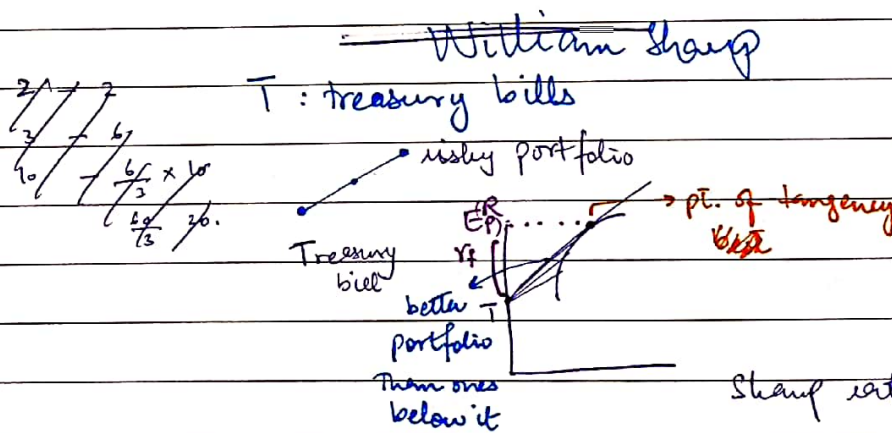 William Sharp
T : treasury bills
risky portfolio
Treasury
bill
E(Rp)
rf
T
pt. of tangency
better
portfolio
Than ones
below it
Sharp rat
6/3 × 10
60/3 20.